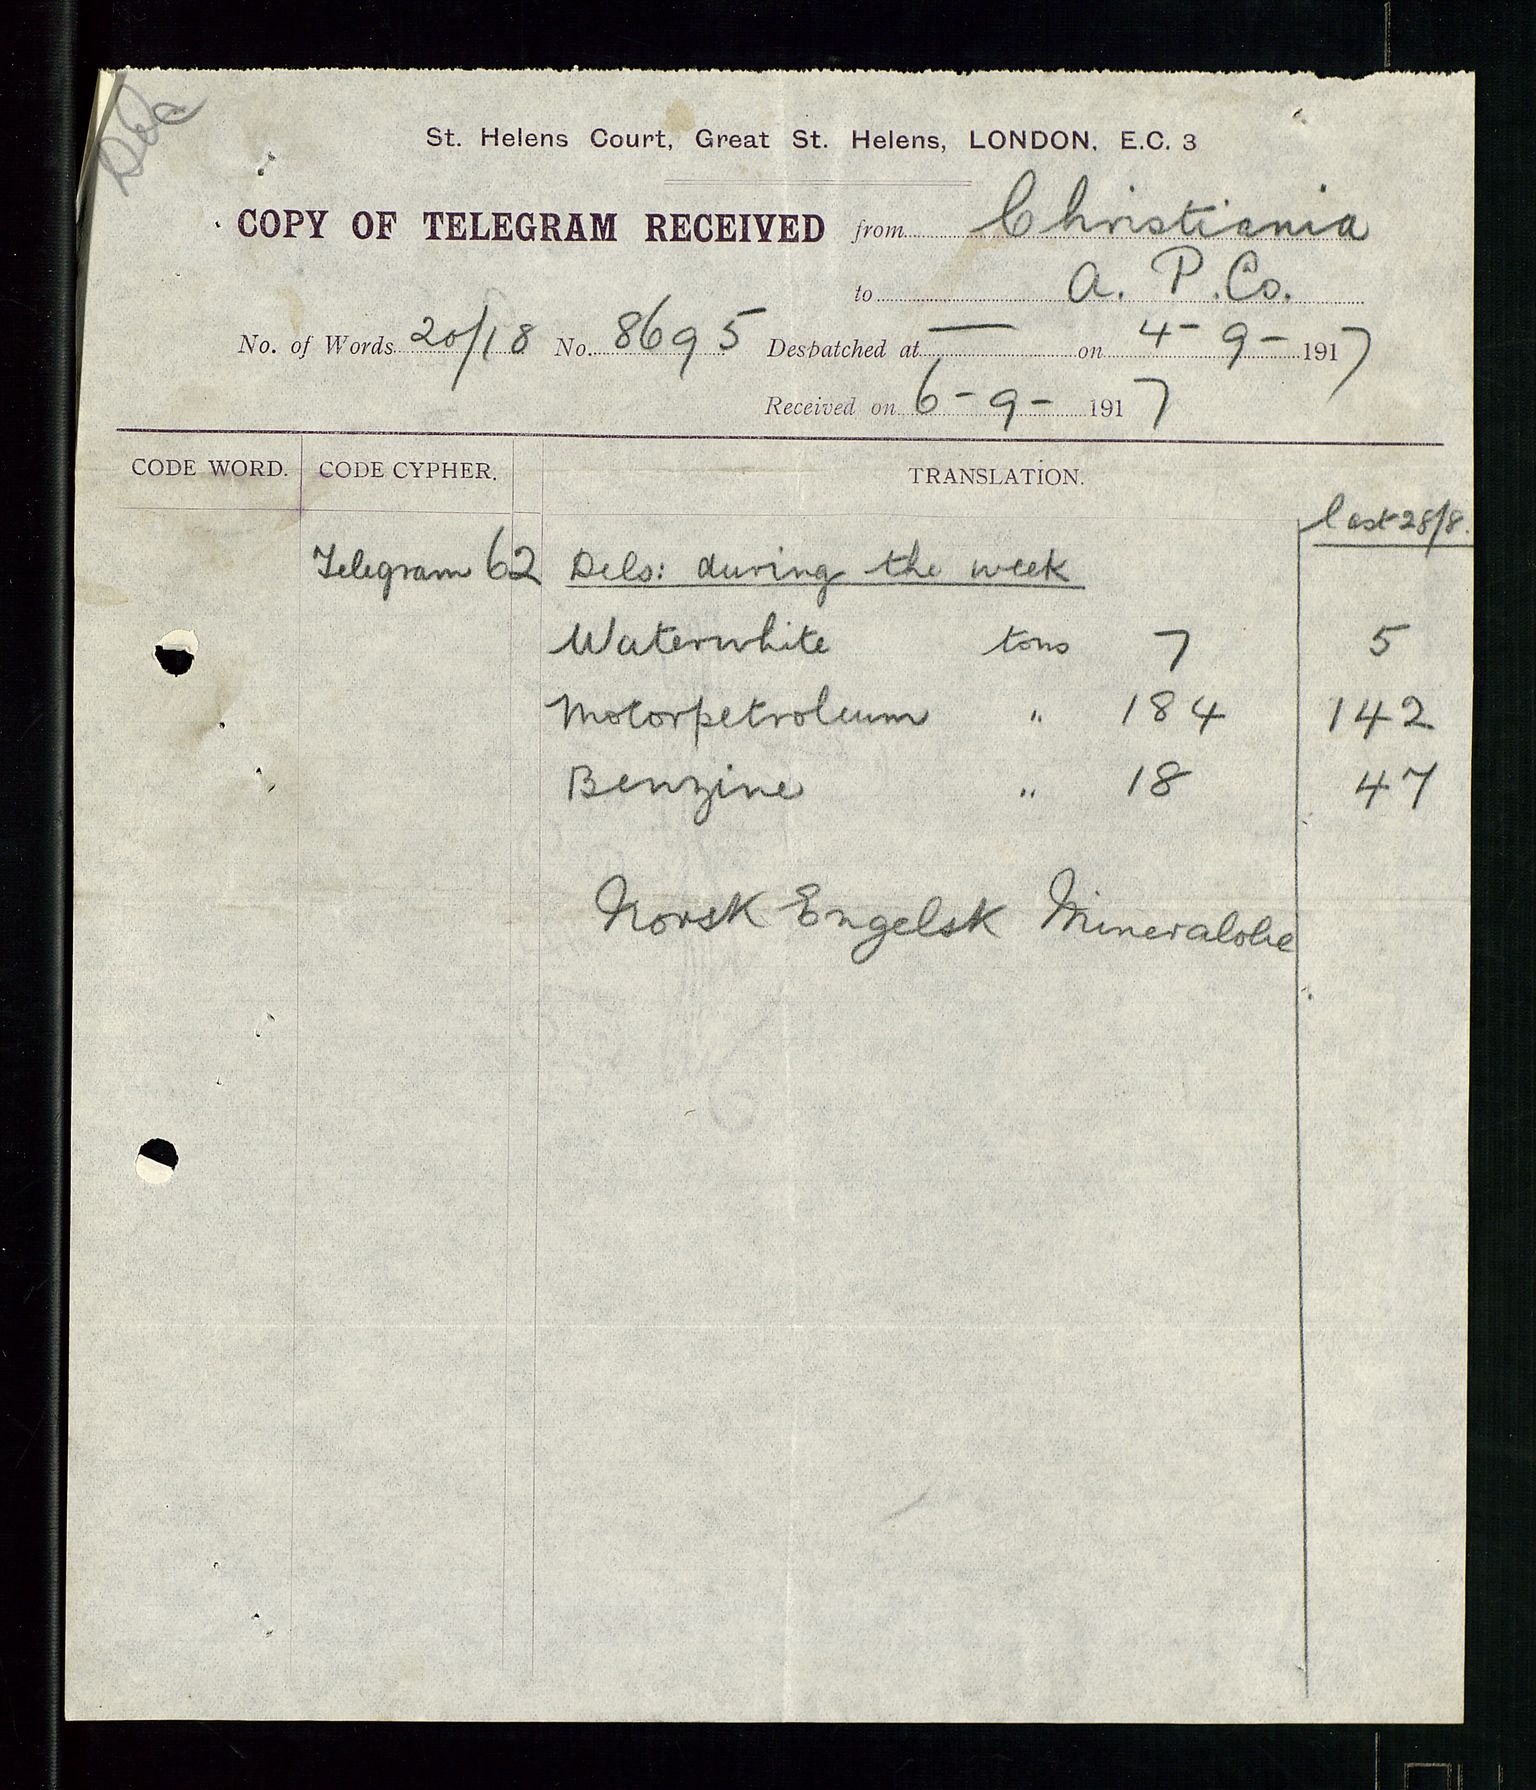 St. Helens Court, Great St. Helens, LONDON, E.C. 3
COPY OF TELEGRAM RECEIVED from Christiania
to A. P. Co.
No. of Words 20/18 No. 8695 Despatched at — on 4-9-1917
Received on 6-9-1917
CODE WORD. CODE CYPHER. TRANSLATION.
last 28/8.
Telegram 62 Dels: during the week
Waterwhite tons 7 5
Motorpetroleum " 184 142
Benzine " 18 47
Norsk Engelsk Mineralolie